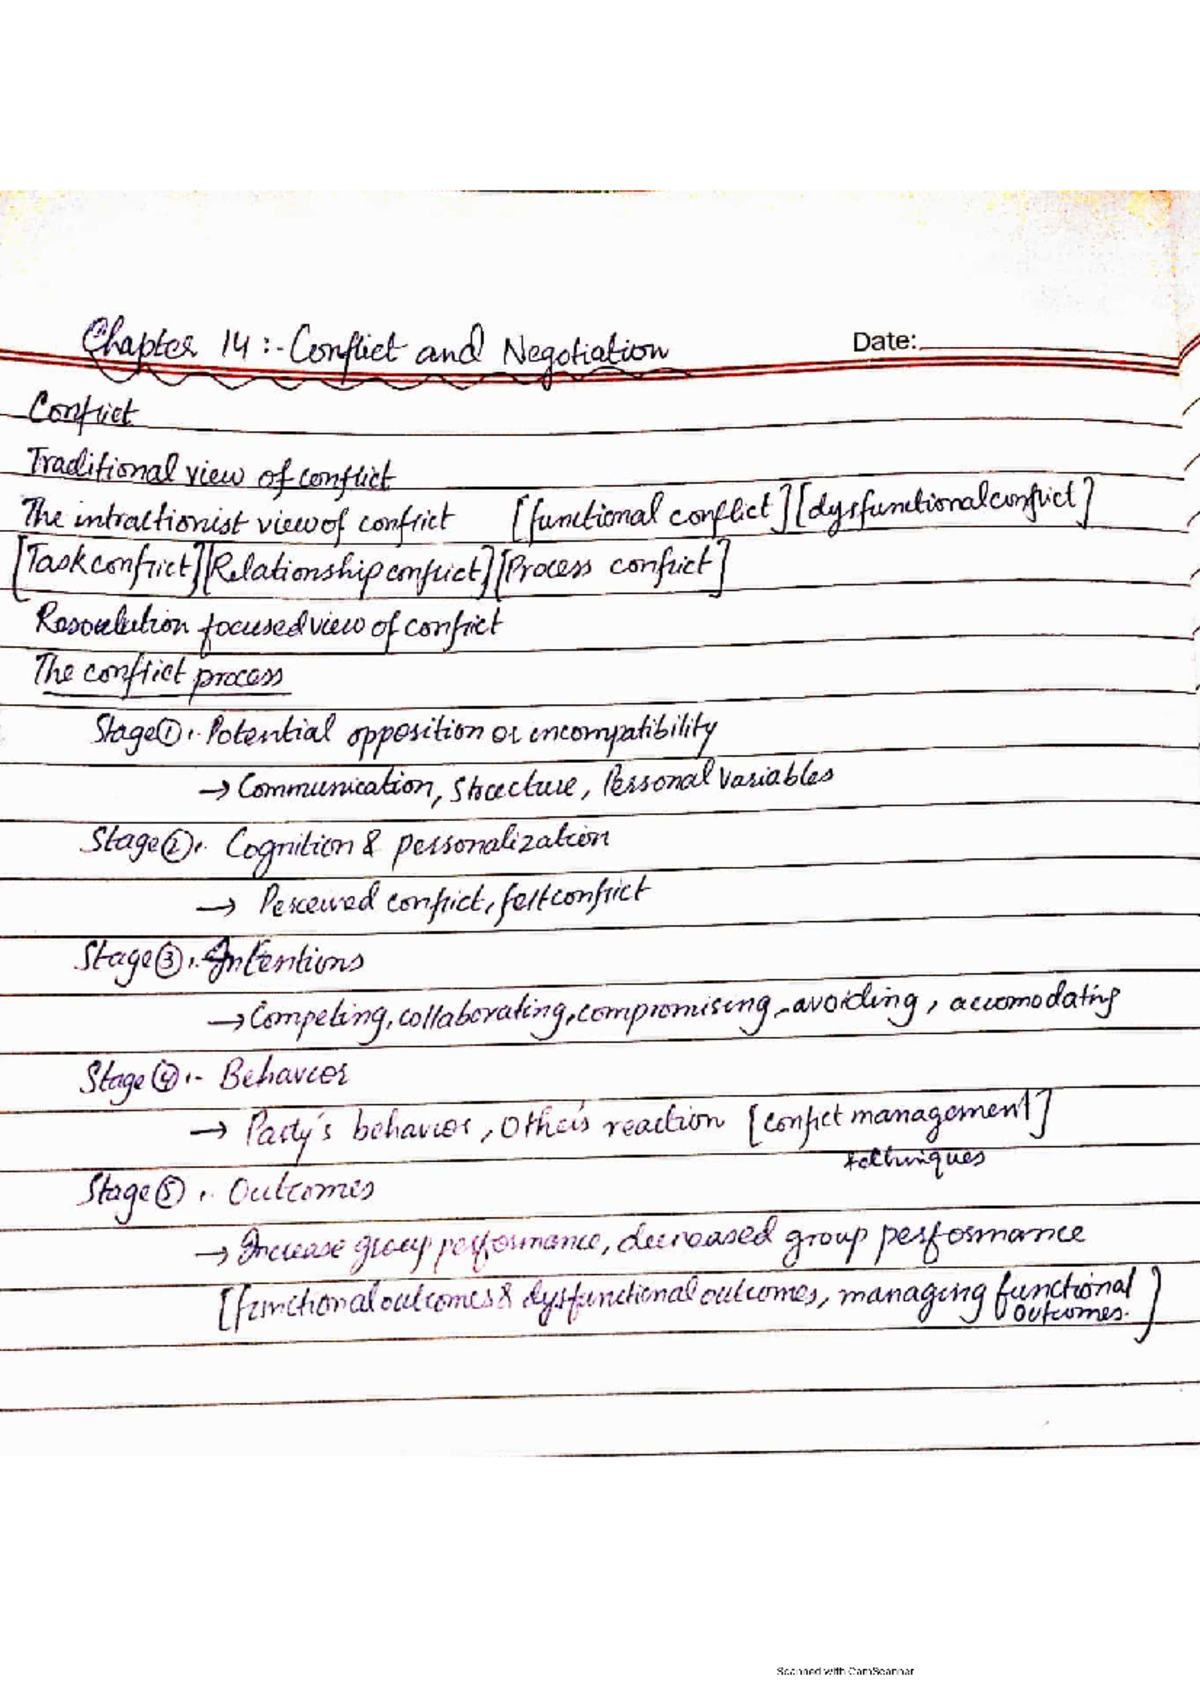 Chapter 14:- Conflict and Negotiation Date:
Conflict
Traditional view of conflict
The intractionist view of conflict [functional conflict] [dysfunctional conflict]
[Task conflict] [Relationship conflict] [Process conflict]
Resoulution focused view of conflict
The conflict process
Stage ① :- Potential opposition or incompatibility
→ Communication, Structure, Personal Variables
Stage ② :- Cognition & personalization
→ Perceived conflict, felt conflict
Stage ③ :- Intentions
→ Competing, collaborating, compromising, avoiding, accomodating
Stage ④ :- Behavior
→ Party's behavior, Other's reaction [conflict management]
techniques
Stage ⑤ :- Outcomes
→ Increase group performance, decreased group performance
[functional outcomes & dysfunctional outcomes, managing functional
outcomes.]
Scanned with CamScanner